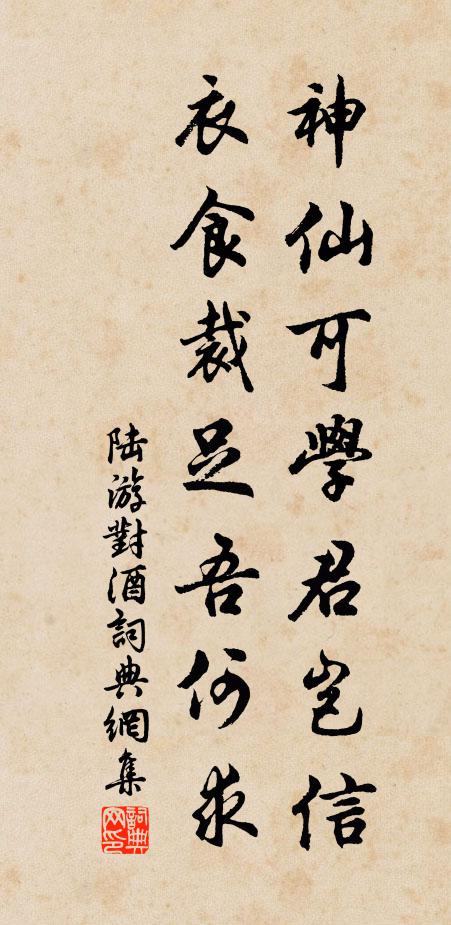 神仙可學君豈信
衣食裁足吾何求
陆游對酒詞典網集
詞典网印